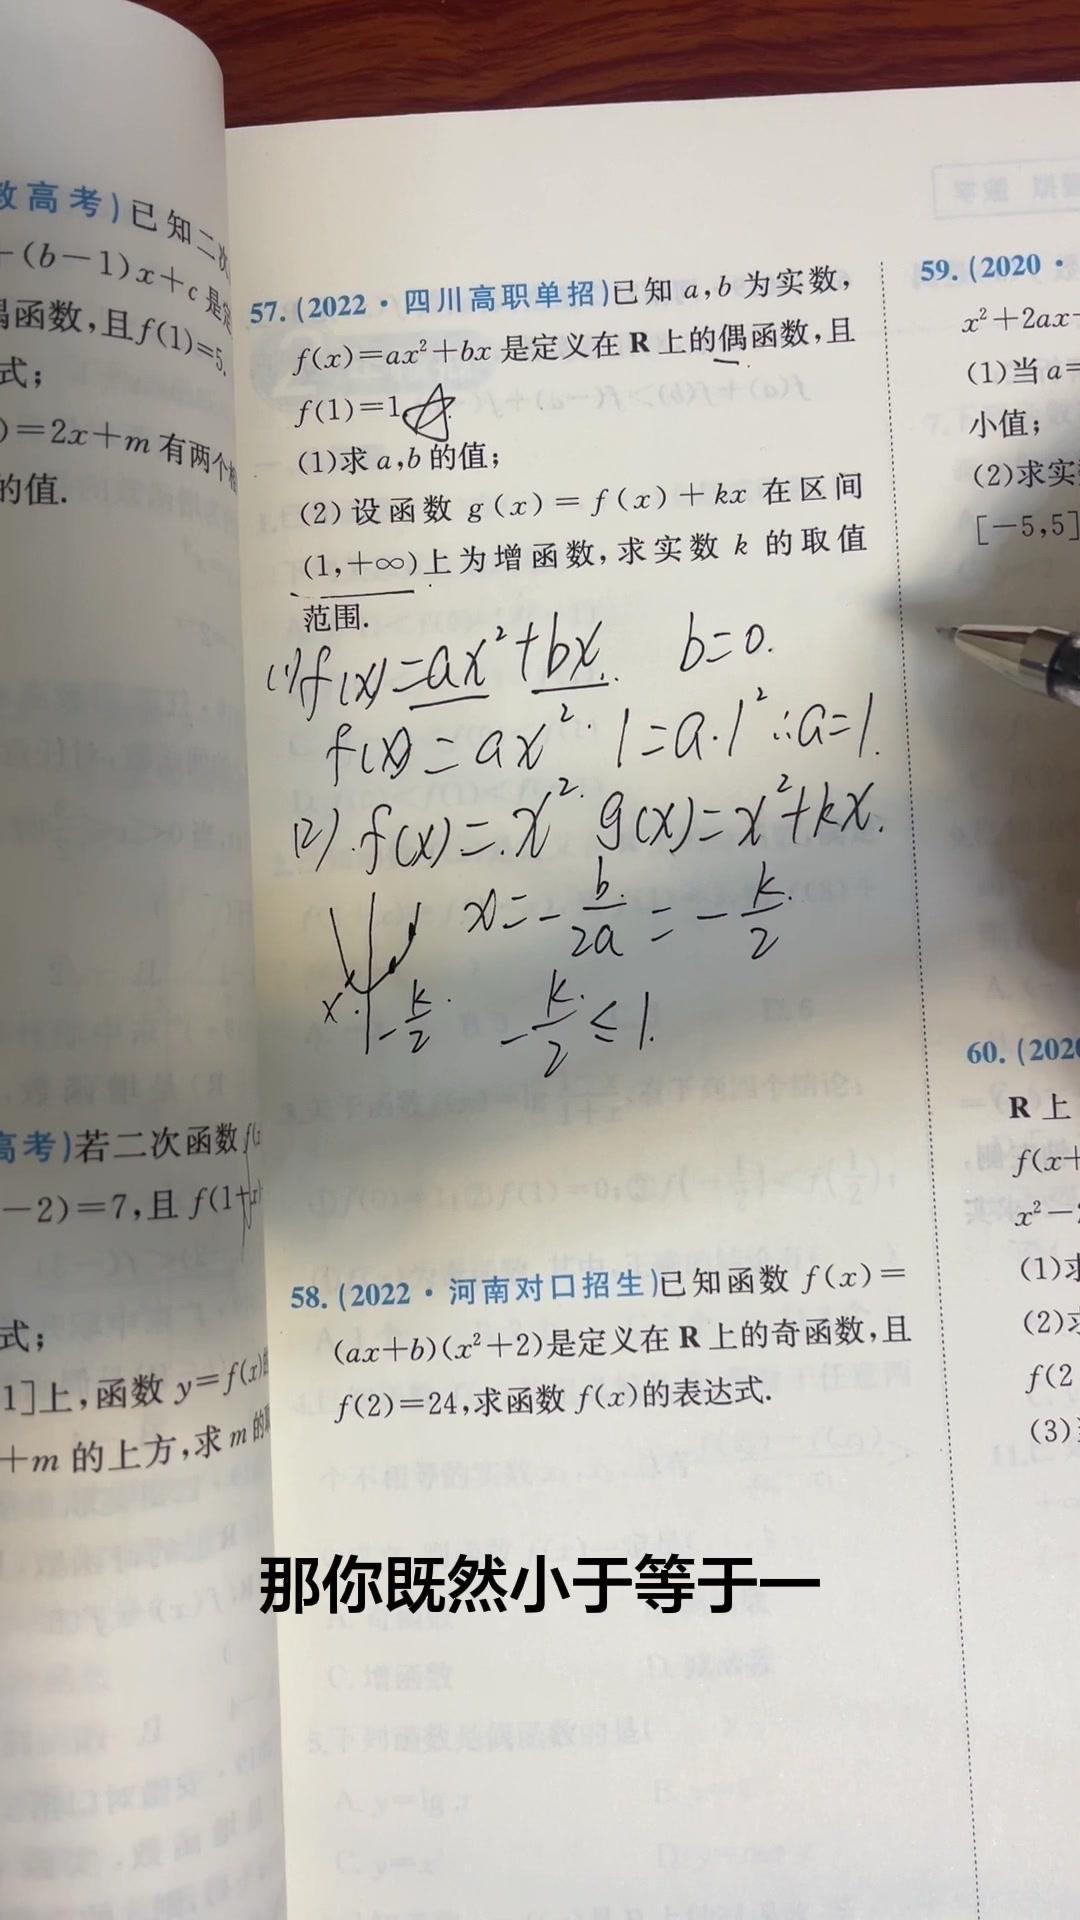 数高考)已知二次
+(b-1)x+c是定
偶函数,且f(1)=5.
式;
)=2x+m有两个相
的值.
高考)若二次函数f(x
-2)=7,且f(1+x)
式;
1]上,函数y=f(x)的
+m的上方,求m的取
57.(2022·四川高职单招)已知a,b为实数,
f(x)=ax²+bx是定义在R上的偶函数,且
f(1)=1.
(1)求a,b的值;
(2)设函数g(x)=f(x)+kx在区间
(1,+∞)上为增函数,求实数k的取值
范围.
(1)f(x)=ax²+bx. b=0.
f(x)=ax². 1=a·1² ∴a=1.
(2).f(x)=x². g(x)=x²+kx.
x=-b/2a=-k/2
x. -k/2. -k/2≤1.
58.(2022·河南对口招生)已知函数f(x)=
(ax+b)(x²+2)是定义在R上的奇函数,且
f(2)=24,求函数f(x)的表达式.
59.(2020·
x²+2ax+
(1)当a=
小值;
(2)求实
[-5,5]
60.(2020
R上
f(x+
x²-
(1)求
(2)求
f(2
(3)
那你既然小于等于一